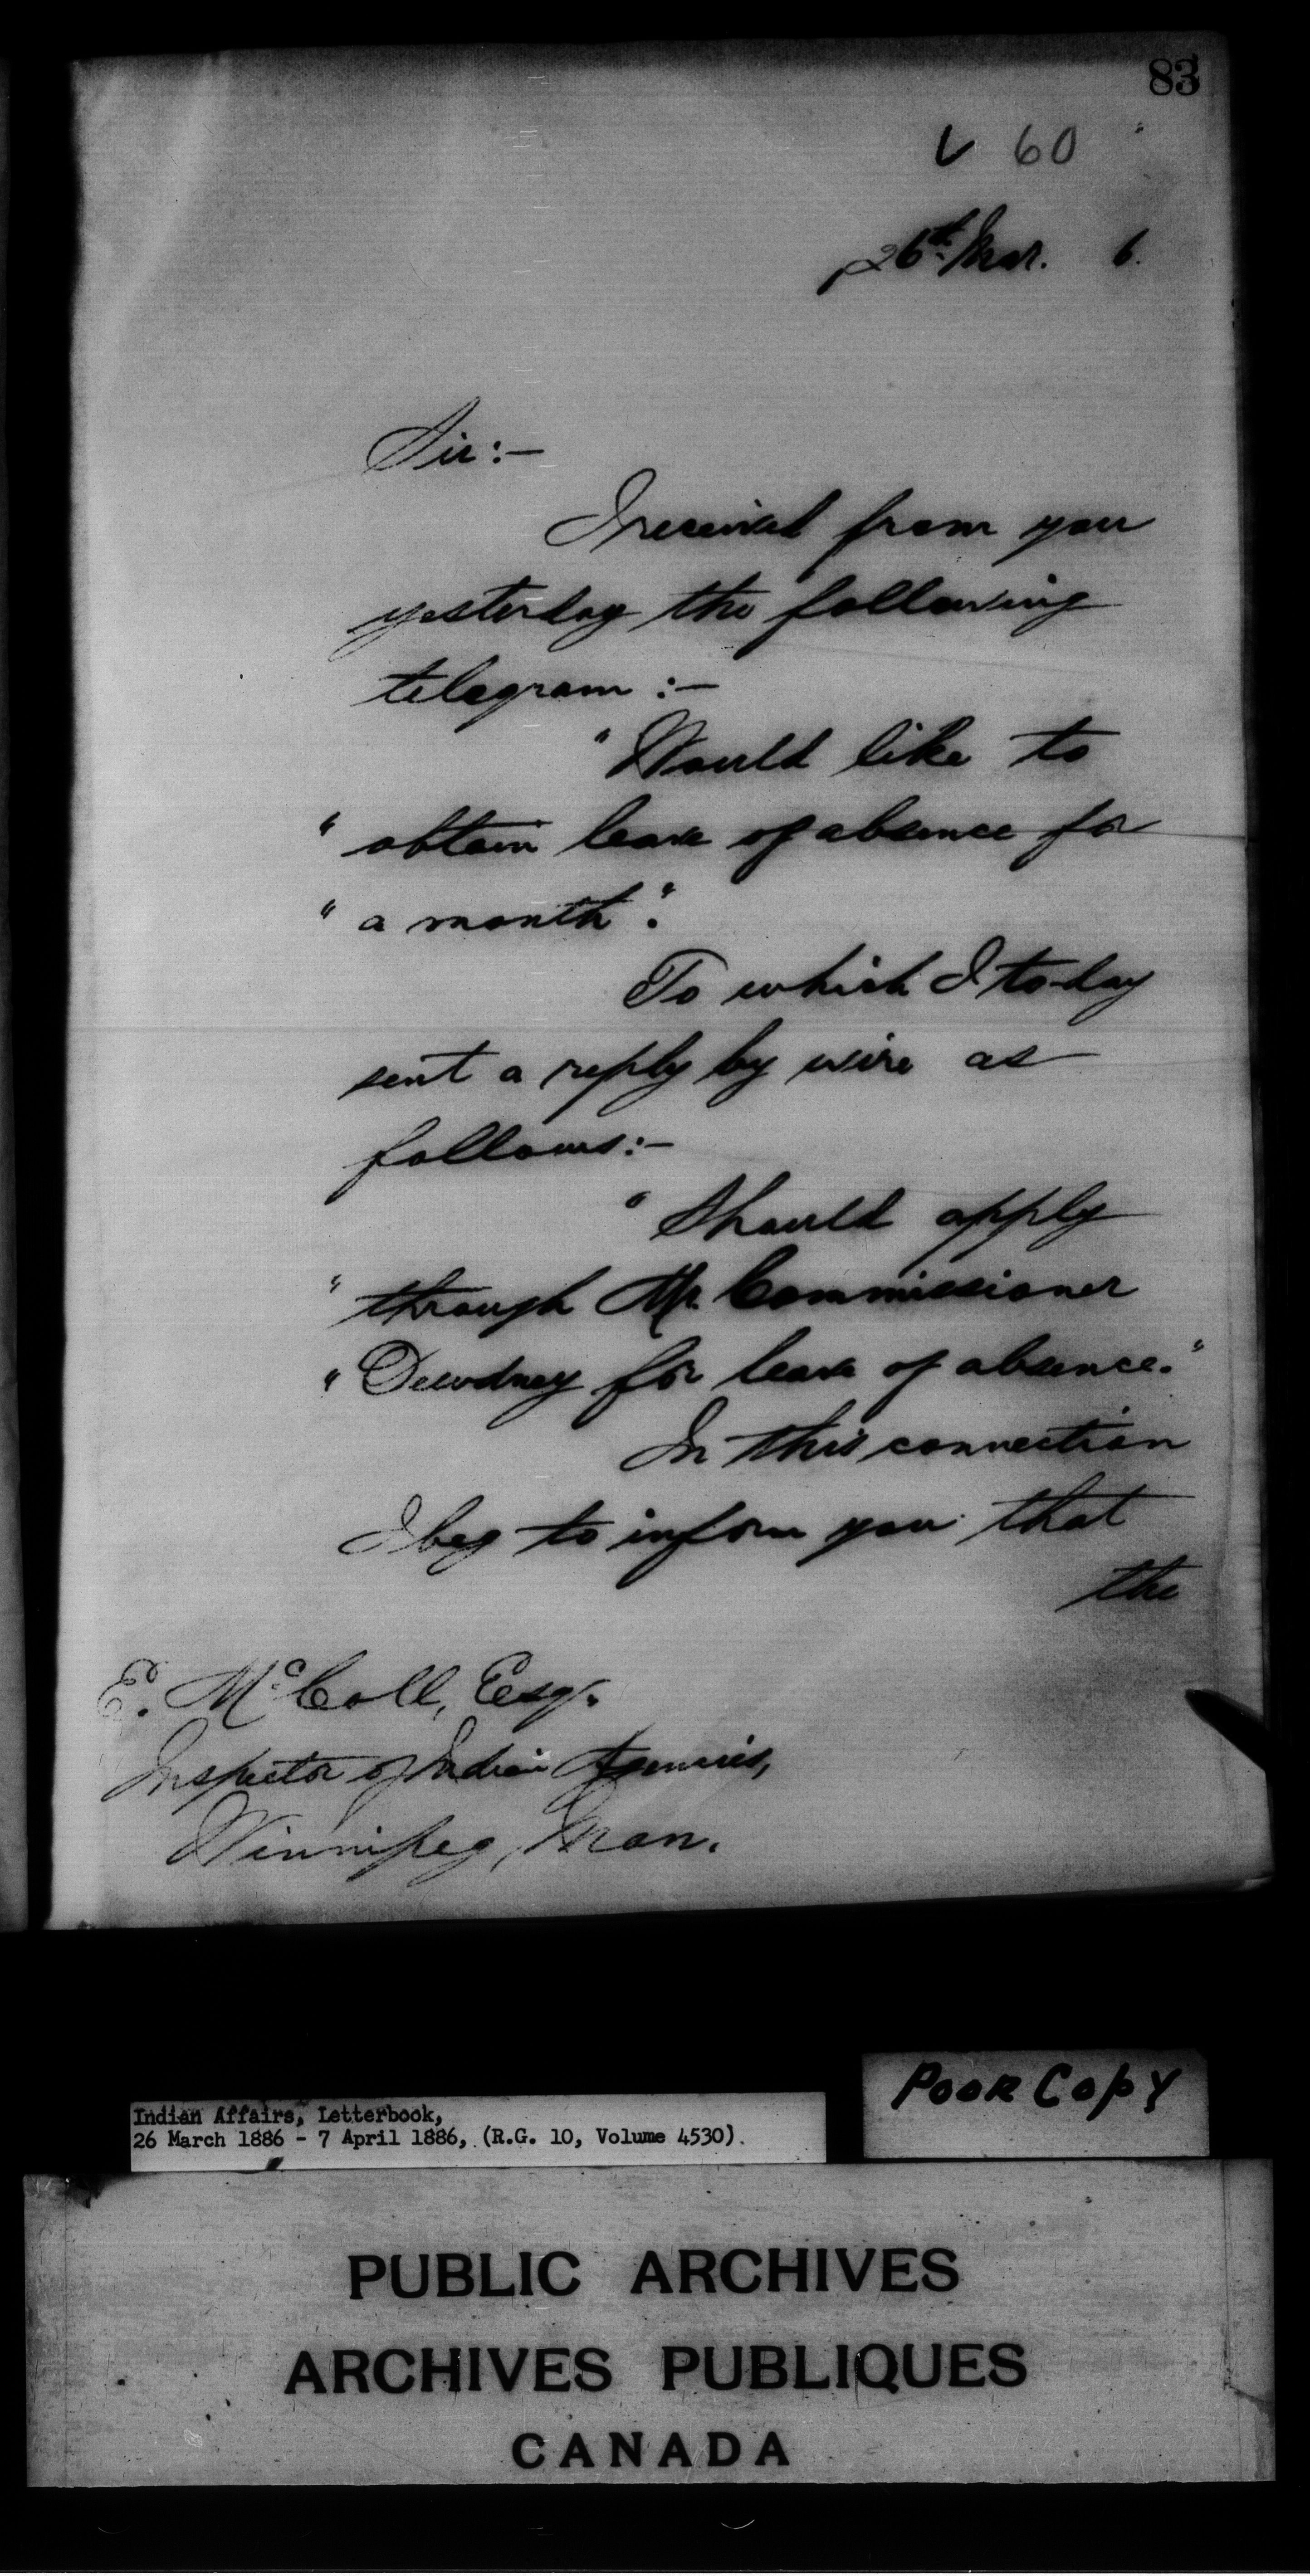 83
60
26th Mar. 6.
Sir:—
I received from you
yesterday the following
telegram:—
"Would like to
" obtain leave of absence for
" a month".
To which I to-day
sent a reply by wire as
follows:—
"Should apply
" through Mr. Commissioner
" Dewdney for leave of absence."
In this connection
I beg to inform you that
the
E. McColl, Esq.
Inspector of Indian Agencies,
Winnipeg, Man.
Poor Copy
Indian Affairs, Letterbook,
26 March 1886 - 7 April 1886, (R.G. 10, Volume 4530).
PUBLIC ARCHIVES
ARCHIVES PUBLIQUES
CANADA